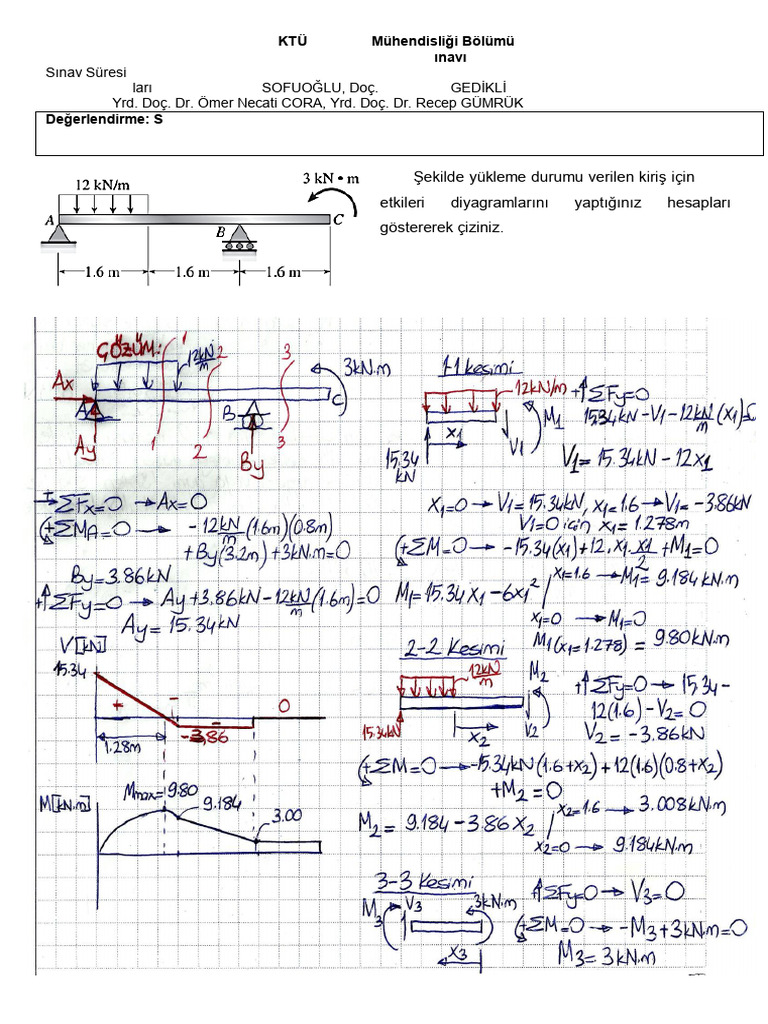 KTÜ Mühendisliği Bölümü
ınavı
Sınav Süresi
ları SOFUOĞLU, Doç. GEDİKLİ
Yrd. Doç. Dr. Ömer Necati CORA, Yrd. Doç. Dr. Recep GÜMRÜK
Değerlendirme: S
12 kN/m
3 kN • m
A
B
C
1.6 m 1.6 m 1.6 m
Şekilde yükleme durumu verilen kiriş için
etkileri diyagramlarını yaptığınız hesapları
göstererek çiziniz.
ÇÖZÜM:
1 2 3
12kN/m
3kN.m
Ax
A
B
C
1 2 3
Ay
By
→+ ΣFx=0 → Ax=0
(+ ΣMA=0 → -12kN/m (1.6m)(0.8m)
+By(3.2m)+3kN.m=0
By=3.86kN
+↑ΣFy=0 → Ay+3.86kN-12kN/m(1.6m)=0
Ay=15.34kN
V[kN]
15.34
+
-
-
0
-3,86
1.28m
M[kN.m]
Mmax=9.80
9.184
3.00
1-1 kesimi
12kN/m
M1
x1
V1
15.34
kN
+↑ΣFy=0
15.34kN-V1-12kN/m(x1)=0
V1=15.34kN-12x1
x1=0 → V1=15.34kN, x1=1.6 → V1=-3.86kN
V1=0 için x1=1.278m
(+ ΣM=0 → -15.34(x1)+12.x1.x1/2+M1=0
M1=15.34x1-6x1² / x1=1.6 → M1=9.184kN.m
x1=0 → M1=0
M1(x1=1.278) = 9.80kN.m
2-2 Kesimi
12kN/m
M2
V2
15.34kN
x2
+↑ΣFy=0 → 15.34-
12(1.6)-V2=0
V2=-3.86kN
(+ ΣM=0 → -15.34kN(1.6+x2)+12(1.6)(0.8+x2)
+M2=0
M2=9.184-3.86x2 / x2=1.6 → 3.008kN.m
x2=0 → 9.184kN.m
3-3 Kesimi
M3
V3
3kN.m
x3
+↑ΣFy=0 → V3=0
(+ ΣM=0 → -M3+3kN.m=0
M3=3kN.m